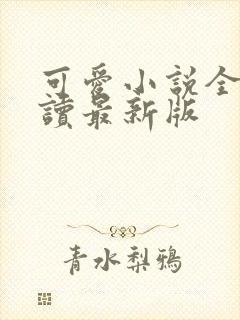 可愛小說全
讀最新版
青水梨鴉